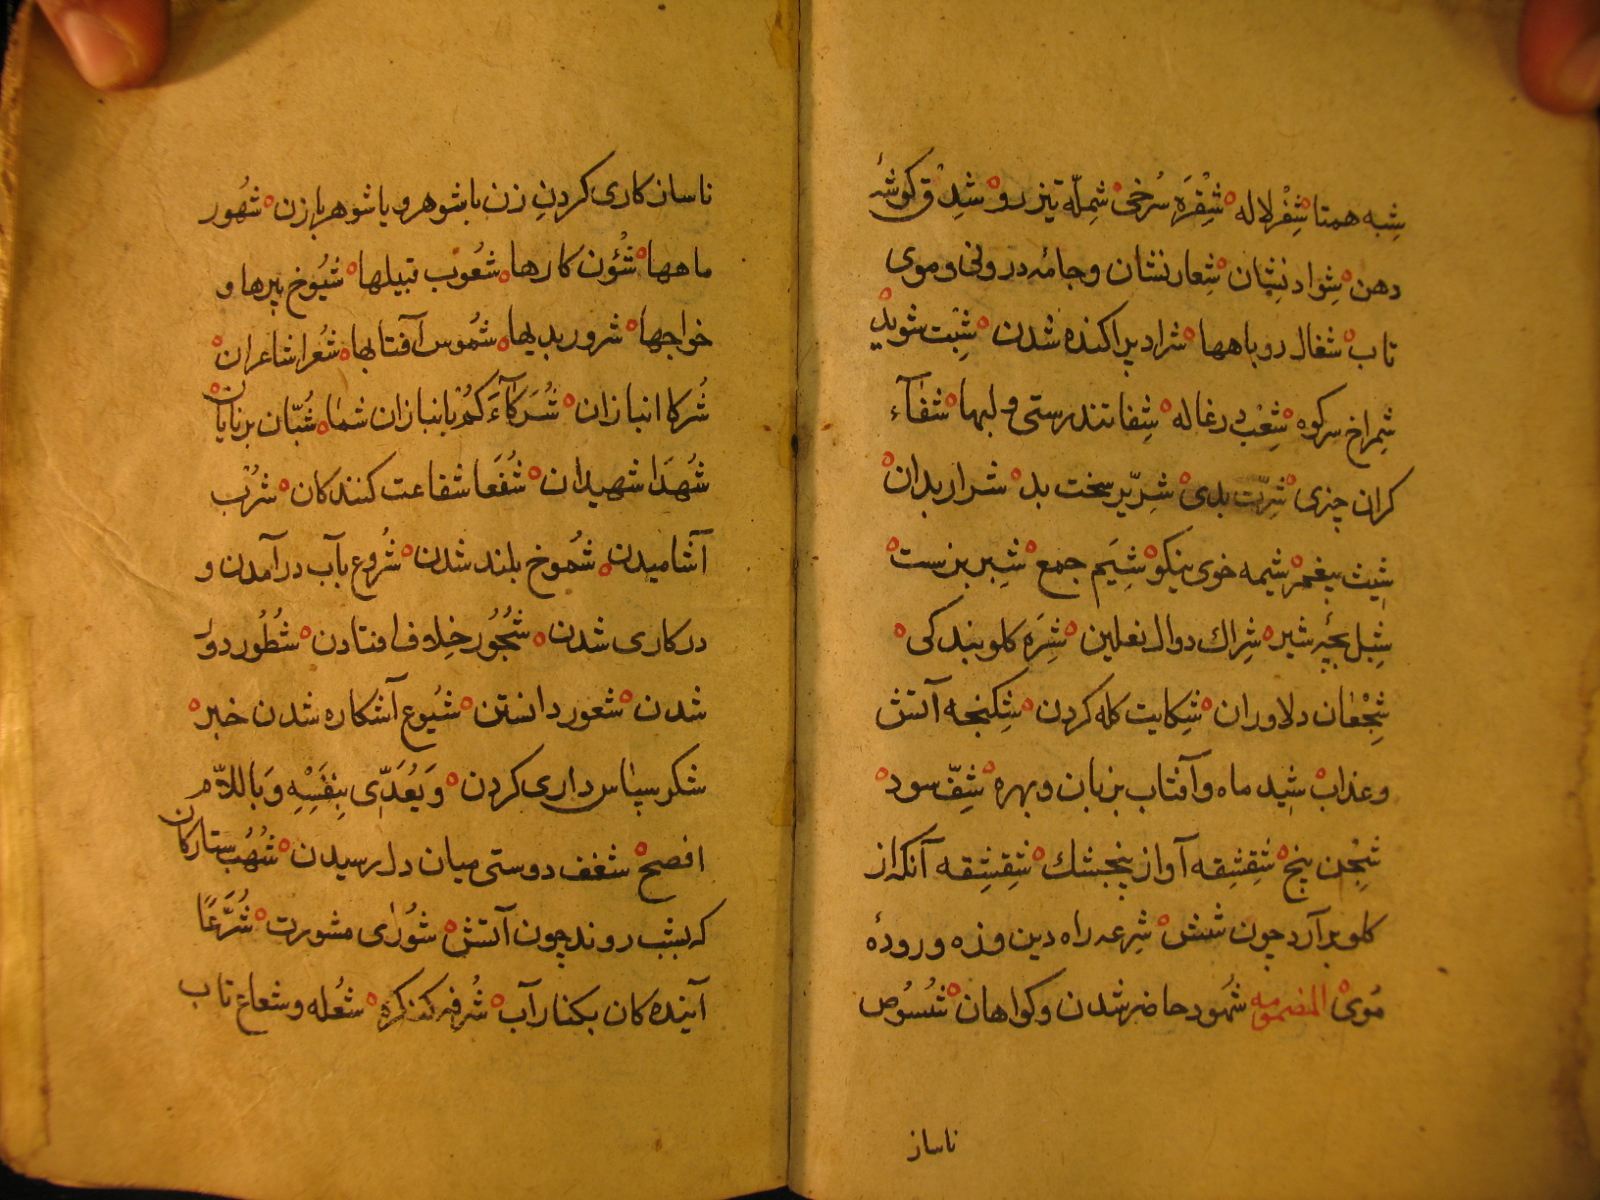 شِبه همتا شِقْر لاله شِقْرَه سُرخی شِملّه تیز رو شِدْق کوشهٔ
دهن شِواد نشان شِعار نشان و جامه درونی و موی
تاب شغال روباهها شراد پراکنده شدن شِبْت شوید
شِمراخ سرکوه شِعْب درغاله شِفا تندرستی و لبها شفآء
کران چیزی شِرّت بدی شِرّیر سخت بد شرار بدان
شیث پیغمبر شیمه خوی نیکو شِیَم جمع شِبر بزست
شِبل بچهٔ شیر شِراك دوال نعلین شِرَه کلوبندکی
شِجْعان دلاوران شِکایت کله کردن شکنجه آتش
و عذاب شید ماه و آفتاب بزبان و بهره شِفّ سود
شِجْن بیخ شِقشِقه آواز بنجشك شِقشِقه آنکه از
کلو برآرد چون شش شِرعه راه دین و زه و رودهٔ
مُوی المضمومه شُهود حاضر شدن و کواهان شُسُوص
ناساز
ناسازکاری کردنِ زن با شوهر و یا شوهر با زن شهُور
ماهها شُؤن کارها شعُوب قبیلها شیُوخ پیرها و
خواجها شرور بدیها شمُوس آفتابها شعُرا شاعران
شُرکا انبازان شُرَکآءَکُمْ بانبازان شما شُبّان برنایان
شُهَدا شهیدان شُفَعا شفاعت کنندکان شرُب
آشامیدن شمُوخ بلند شدن شُروع بآب درآمدن و
درکاری شدن شُجُور خِلاف افتادن شُطُور دور
شدن شعور دانستن شیُوع آشکاره شدن خبر
شکر سپاس داری کردن وَیُعَدّی بِنَفَسِهِ وَبِاللّام
افصح شغف دوستی میان دل رسیدن شُهُب ستارکان
که بشب روند چون آتش شُورٰی مشورت شُرَّعًا
آینده کان بکنار آب شُرفه کنکره شعُله و شعاع تاب